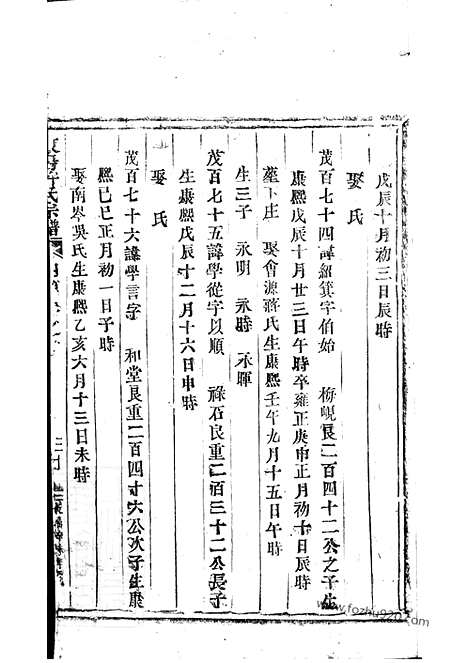 戊辰十月初三日辰時
娶氏
茂百七十四諱紹箕字伯始　梅峴艮二百四十二公之子生
康熙戊辰十月廿三日午時卒雍正庚申正月初十日辰時
墓下庄　娶會源蔣氏生康熙壬午九月十五日午時
生三子　永明　永時　永暉
茂百七十五諱學從字以順　祿石艮重二百三十二公長子
生康熙戊辰十二月十六日申時
娶氏
茂百七十六諱學言字　和堂艮重二百四十六公次子生康
熙己巳正月初一日子時
娶南岑吳氏生康熙乙亥六月十三日未時
許氏宗譜
www.fozhu920.com